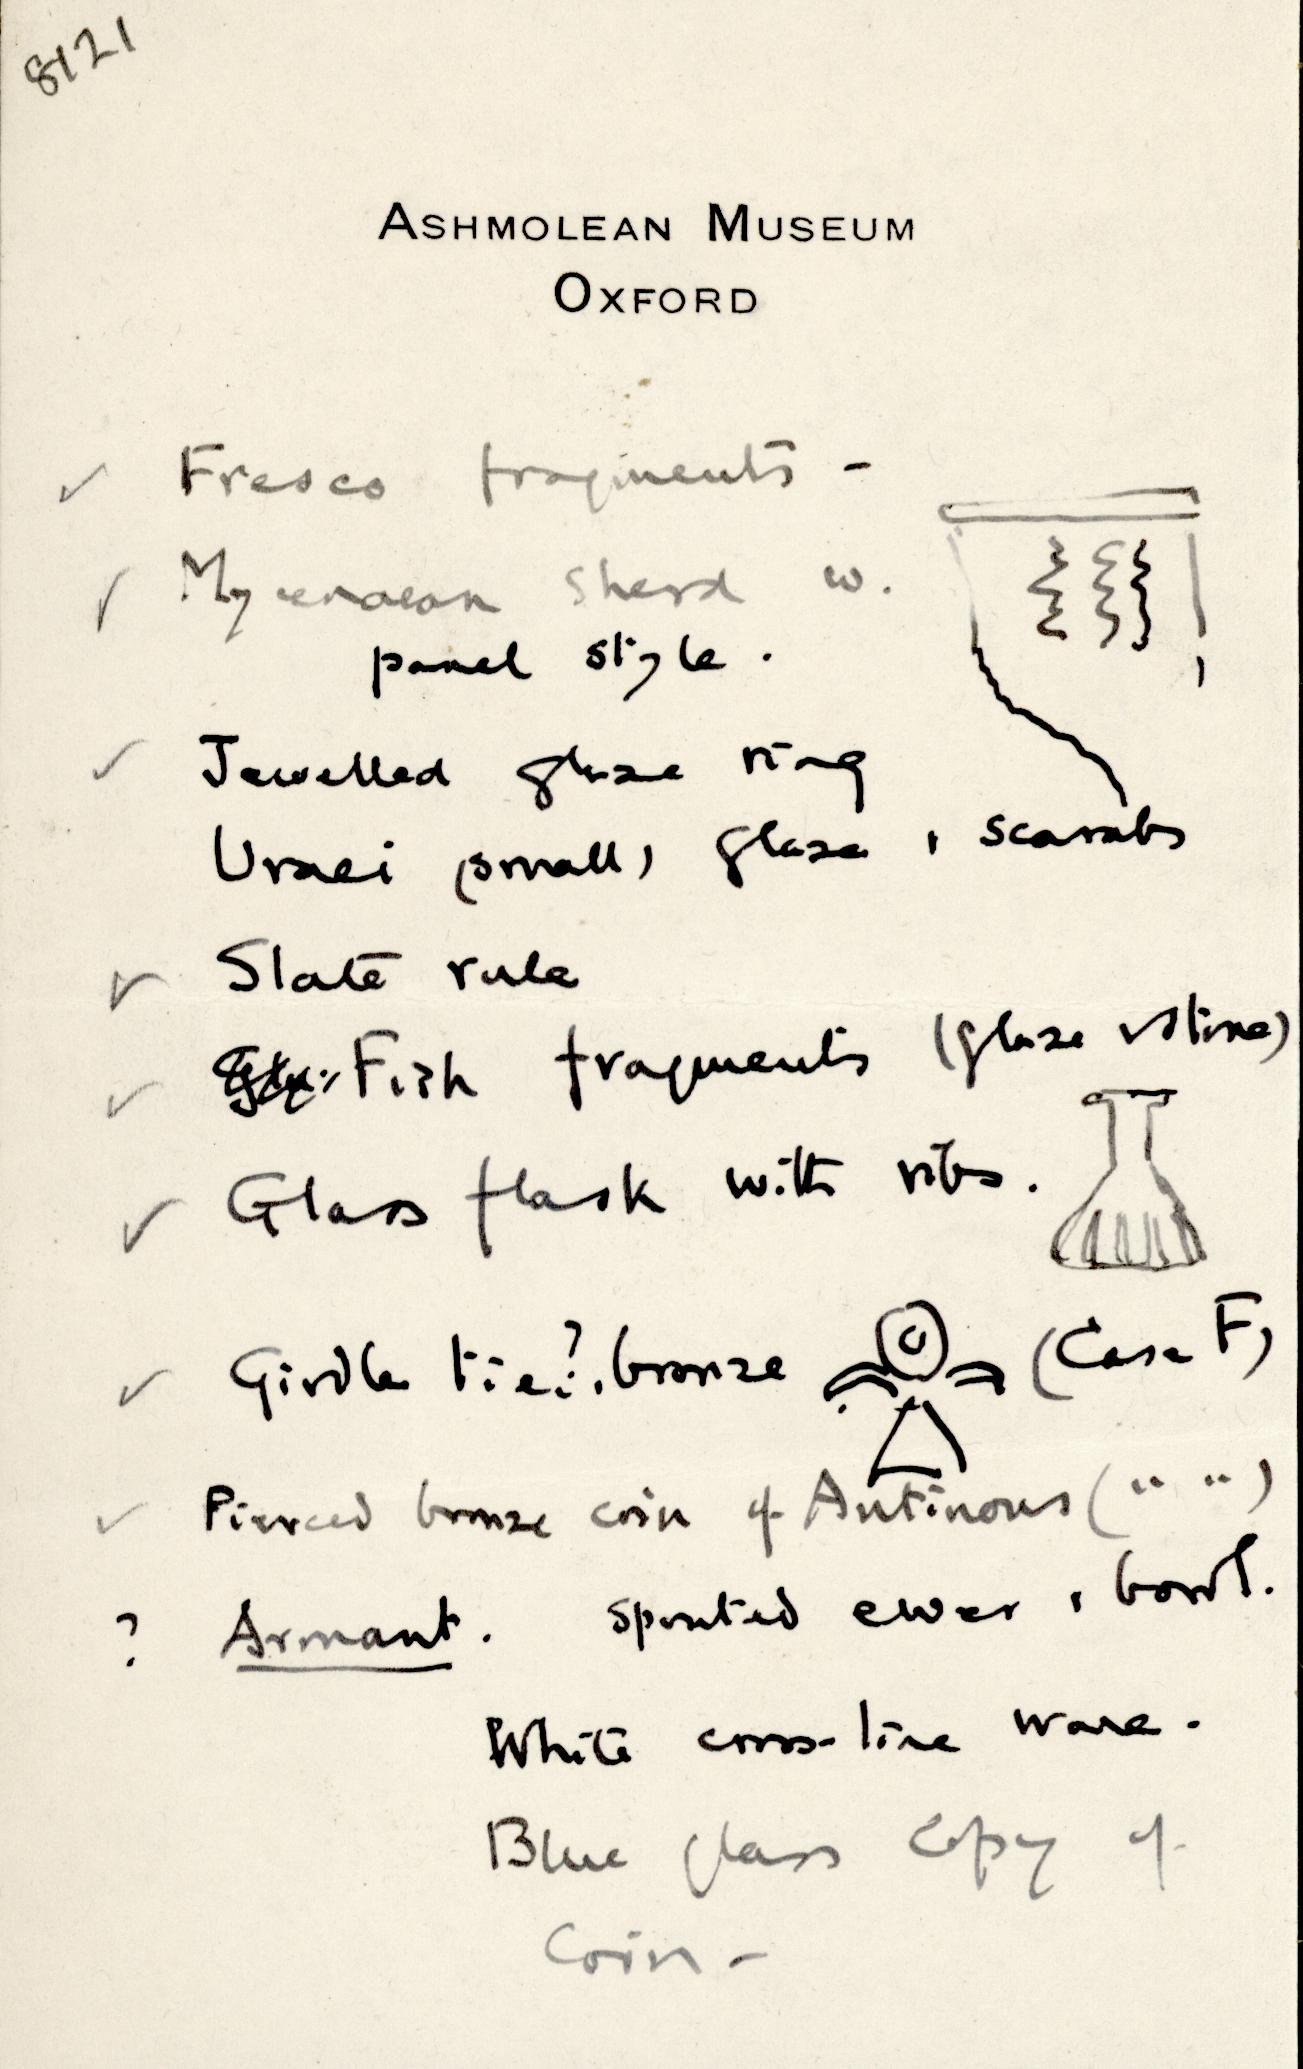 8121
ASHMOLEAN MUSEUM
OXFORD
✓ Fresco fragments -
✓ Mycenaean sherd w.
panel style.
✓ Jewelled glaze ring
Uraei (small) glaze, scarabs
✓ Slate rule
✓ Fish fragments (glaze
✓ Glass flask with ribs.
✓ Girdle tie?, bronze (Case F)
✓ Pierced bronze coin of Antinous (" ")
? Armant. spouted ewer, bowl.
White cross-line ware.
Blue glass copy of
coin -